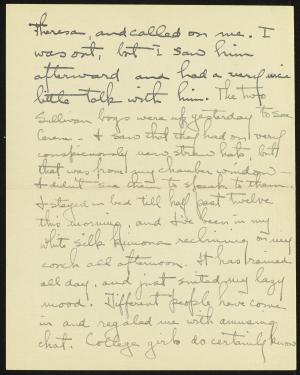 Theresa, and called on me. I
was out, but I saw him
afterward and had a very nice
little talk with him. The two
Sullivan boys were up yesterday to see
Cora – I saw that they had on very
conspicuously new straw hats, but
that was from my chamber window –
I didn't see them to speak to them.
I stayed in bed till half past twelve
this morning, and I've been in my
white silk kimona reclining on my
couch all afternoon. It has rained
all day, and just suited my lazy
mood! Different people have come
in and regaled me with amusing
chat. College girls do certainly know